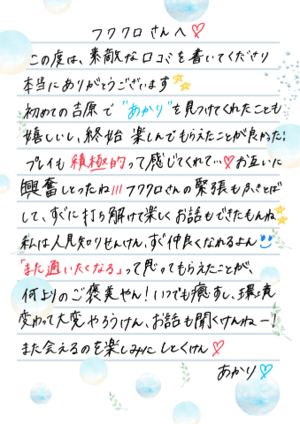 フククロさんへ♡
この度は、素敵な口コミを書いてくださり
本当にありがとうございます
初めての吉原で"あかり"を見つけてくれたことも
嬉しいし、終始楽しんでもらえたことが良かった!
プレイも積極的って感じてくれて…♡お互いに
興奮しとったね!!!フククロさんの緊張も
して、すぐに打ち解けて楽しくお話もできたもんね
私は人見知りせんけん、すぐ仲良くなれるよん
「また通いたくなる」って思ってもらえたことが、
何よりのご褒美やん!いつでも癒すし、環境
変わって大変やろうけん、お話も聞くけんねー!
また会えるのを楽しみにしとくけん♡
あかり♡